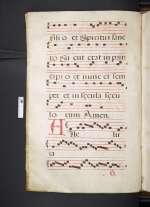 filio et Spiritui sanc
to Sicut erat in prin
cipio et nunc et sem
per et in secula secu
lorum Amen.